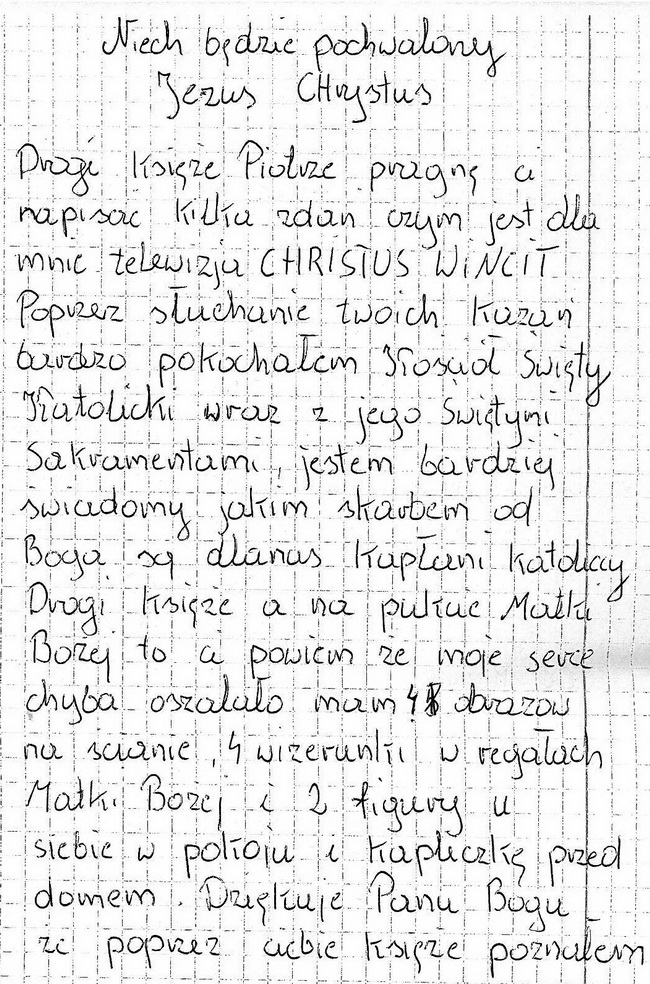 Niech będzie pochwalony
Jezus CHrystus
Drogi Księże Piotrze pragnę ci
napisać kilka zdan czym jest dla
mnie telewizja CHRISTUS WiNCIT
Poprzez słuchanie twoich Kazań
bardzo pokochałem Kościół Święty
Katolicki wraz z jego Świętymi
Sakramentami, jestem bardziej
świadomy jakim skarbem od
Boga są dlanas Kapłani katoliccy
Drogi Księże a na pukcie Matki
Bożej to ci powiem że moje serce
chyba oszalało mam obrazow
na scianie, 4 wizerunki w regałach
Matki Bożej i 2 figury u
siebie w pokoju i kapliczkę przed
domem. Dziękuje Panu Bogu
że poprzez ciebie księże poznałem